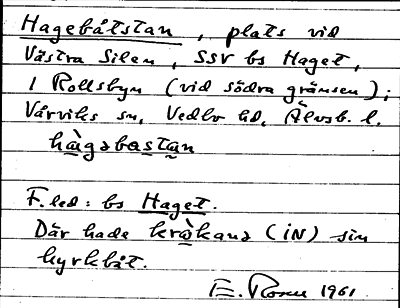 Hagebåtstan, plats vid
Västra Silen, SSV bs Haget,
1 Rollsbyn (vid södra gränsen);
Vårviks sn, Vedbo hd, Älvsb. l.
hàgabastan
F. led: bs Haget.
Där hade kròkana (iN) sin
kyrkbåt.
E. 1961